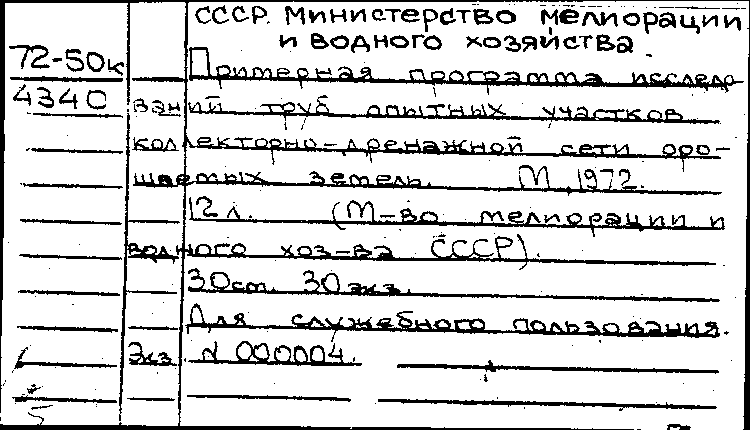 СССР. Министерство мелиорации
и водного хозяйства.
72-50к
Примерная программа исследо-
4340
ваний труб опытных участков
коллекторно-дренажной сети оро-
шаемых земель. М., 1972.
12 л. (М-во мелиорации и
водного хоз-ва СССР).
30 ст. 30 экз.
Для служебного пользования.
Экз. N 000004.
5